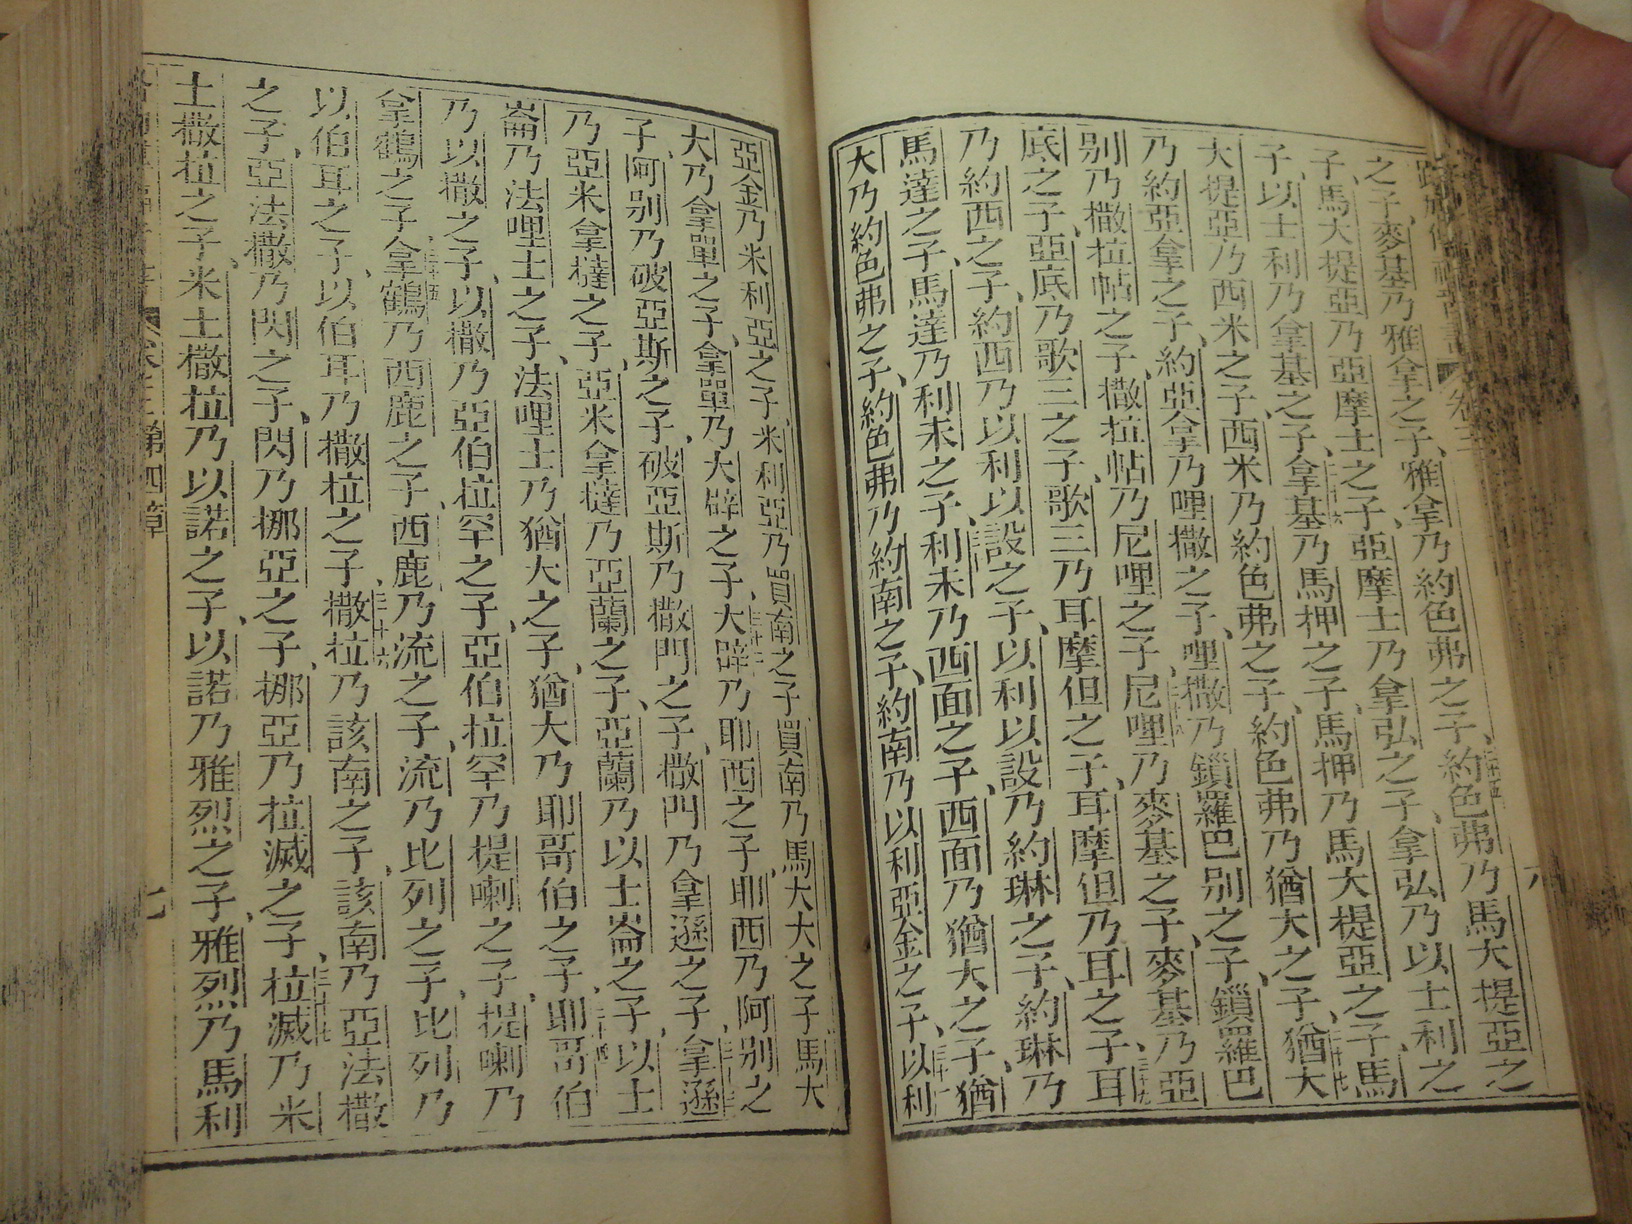 之子、麥基乃雅拿之子、雅拿乃約色弗之子、約色弗乃馬大提亞之
子、馬大提亞乃亞摩士之子、亞摩士乃拿弘之子、拿弘乃以士利之
子、以士利乃拿基之子、拿基乃馬押之子、馬押乃馬大提亞之子、馬
大提亞乃西米之子、西米乃約色弗之子、約色弗乃猶大之子、猶大
乃約亞拿之子、約亞拿乃哩撒之子、哩撒乃鎖羅巴别之子、鎖羅巴
别乃撒拉帖之子、撒拉帖乃尼哩之子、尼哩乃麥基之子、麥基乃亞
底之子、亞底乃歌三之子、歌三乃耳摩但之子、耳摩但乃耳之子、耳
乃約西之子、約西乃以利以設之子、以利以設乃約琳之子、約琳乃
馬達之子、馬達乃利未之子、利未乃西面之子、西面乃猶大之子、猶
大乃約色弗之子、約色弗乃約南之子、約南乃以利亞金之子、以利
亞金乃米利亞之子、米利亞乃買南之子、買南乃馬大大之子、馬大
大乃拿單之子、拿單乃大辟之子、大辟乃耶西之子、耶西乃阿别之
子、阿别乃破亞斯之子、破亞斯乃撒門之子、撒門乃拿遜之子、拿遜
乃亞米拿撻之子、亞米拿撻乃亞蘭之子、亞蘭乃以士崙之子、以士
崙乃法哩士之子、法哩士乃猶大之子、猶大乃耶哥伯之子、耶哥伯
乃以撒之子、以撒乃亞伯拉罕之子、亞伯拉罕乃提喇之子、提喇乃
拿鶴之子、拿鶴乃西鹿之子、西鹿乃流之子、流乃比列之子、比列乃
以伯耳之子、以伯耳乃撒拉之子、撒拉乃該南之子、該南乃亞法撒
之子、亞法撒乃閃之子、閃乃挪亞之子、挪亞乃拉滅之子、拉滅乃米
土撒拉之子、米土撒拉乃以諾之子、以諾乃雅烈之子、雅烈乃馬利
卷三第四章
七